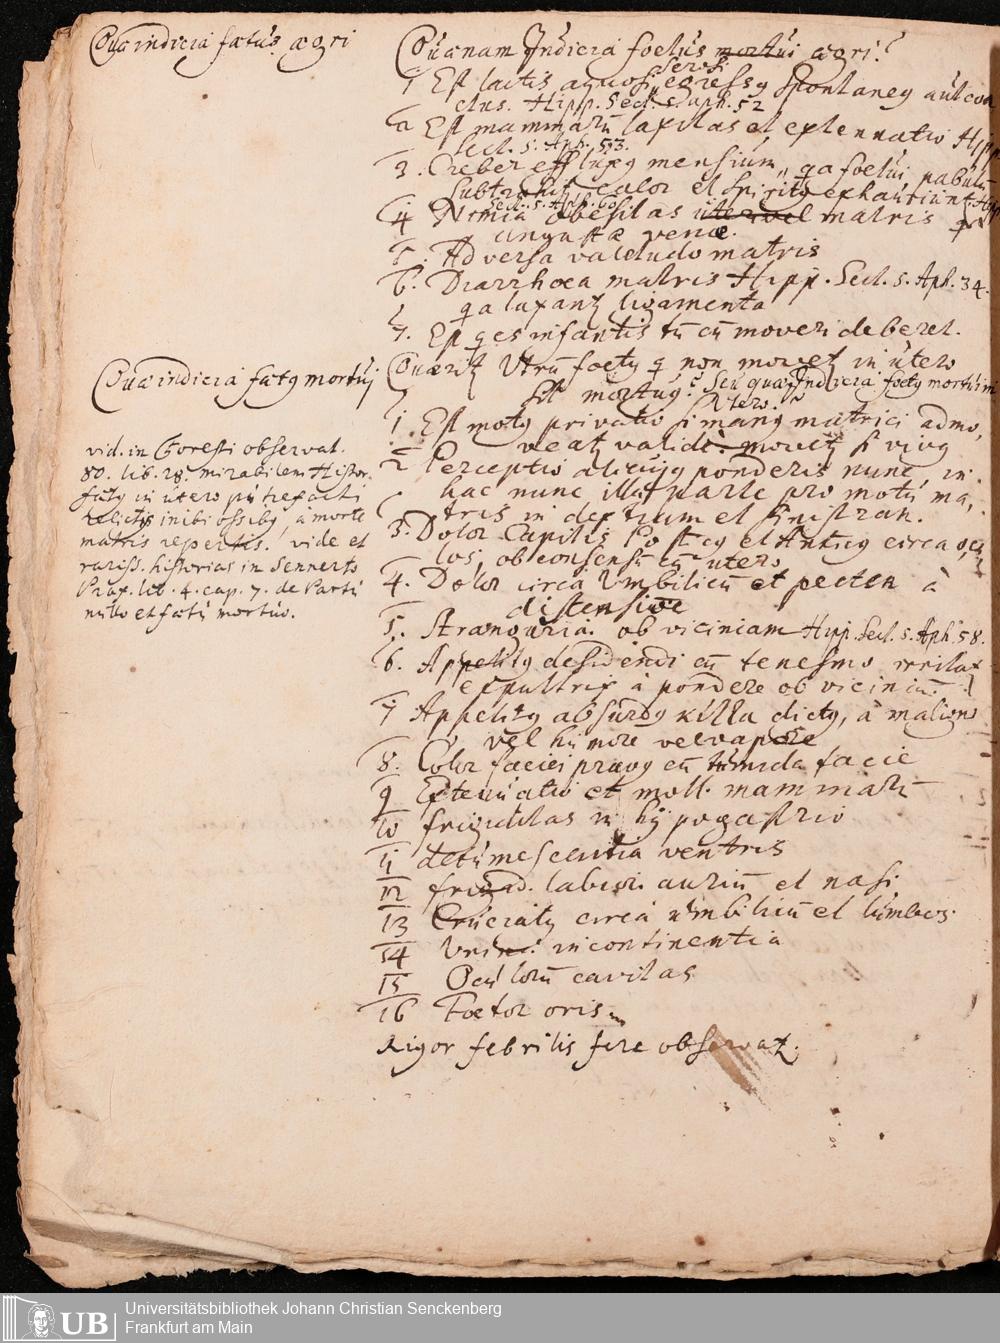 Quae indicia faetus aegri
Quaenam Indicia foetus mortui aegri?
1 Est lactis aquosi, serosi egressus spontaneus aut coa
ctus. Hipp. Sect. 5. aph. 52
2 Est mammarū laxitas et extenuatio Hipp
Sect. 5. Aph. 53.
3. Creber effluxus mensium, qa foetui pabulū
subtrahit, calor et spiritus exhauriunt. Hipp
Sect. 5. Aph. 60
4 Nimia obesitas uteri vel matris
angustae venae.
5. Adversa valetudo matris
6. Diarrhoea matris Hipp. Sect. 5. Aph. 34.
qa laxant ligamenta
7. Est qes infantis tū cū moveri deberet.
Quae indicia faetus mortui
Quaerit Utrū foetus q non movet in utero
sit mortuus? Seu quae Indicia foetus mortui in
Utero?
1. Est motus privatio si manus matrici admo,
veat valide movet si vivus
2 Perceptio alicujus ponderis nunc in
hac nunc illa parte pro motu ma,
tris in dextram et sinistram.
3. Dolor Capitis Posticus et Anticus circa ocu
los, ob consensū cū utero
4. Dolor circa Umbilicū et pecten à
distensione
5. Stranguria. ob viciniam Hipp. Sect. 5. Aph. 58.
6. Appetitus desidendi cū tenesmo irritat
expultrix à pondere ob viciniā.
7 Appetitus absurdus kitta dictus, à maligno
vel humore vel vapore
8. Color faciei pravus cū tumida facie
9 Extenuatio et moll. mammarū
10 frigiditas in hypogastrio
11 detumescentia ventris
12 frigid. labior. auriū et nasi
13 Cruciatus circa umbilicū et lumbos.
14 Urin. incontinentia
15 Oculorū cavitas
16 Foetor oris
Rigor febrilis fere observat.
vid. in Foresti observat.
80. lib. 28. mirabilem Histor.
faetus in utero putrefacti
relictis inibi ossibus, à morte
matris repertis. vide et
rariss. historias in Sennerto
Prax. lib. 4. cap. 7. de Partu
nullo et faetu mortuo.
Universitätsbibliothek Johann Christian Senckenberg
Frankfurt am Main
UB